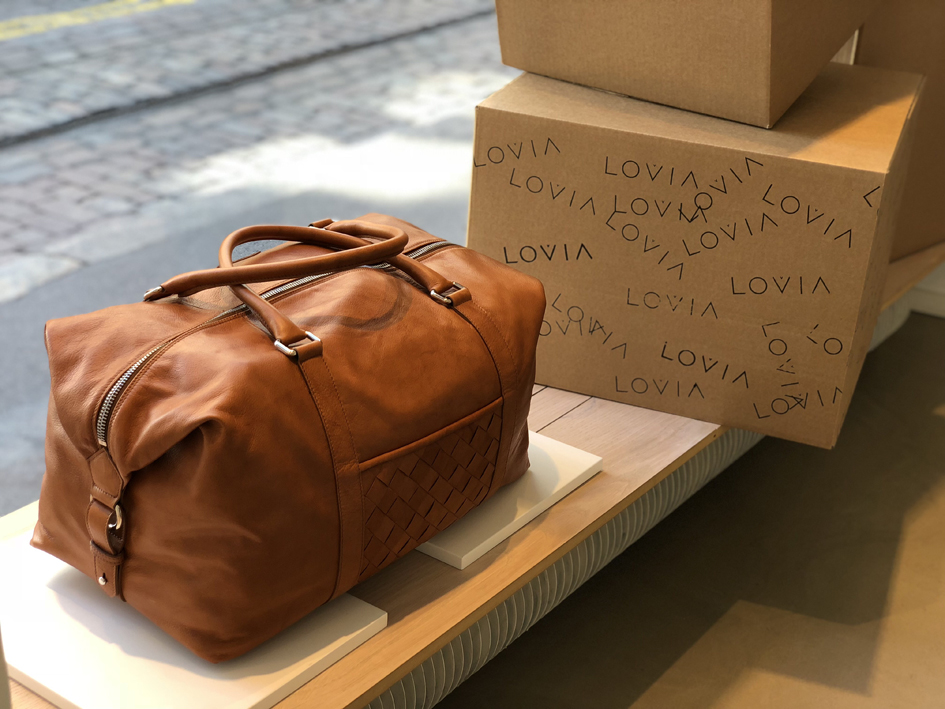 LOVIA
LOVIA
LOVIA
LOVIA
LOVIA
LOVIA
LOVIA
LOVIA
LOVIA
LOVIA
LOVIA
LOVIA
LOVIA
LOVIA
LOVIA
LOVIA